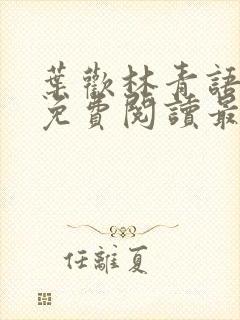 葉歡林青語
免費閱讀最
任離夏